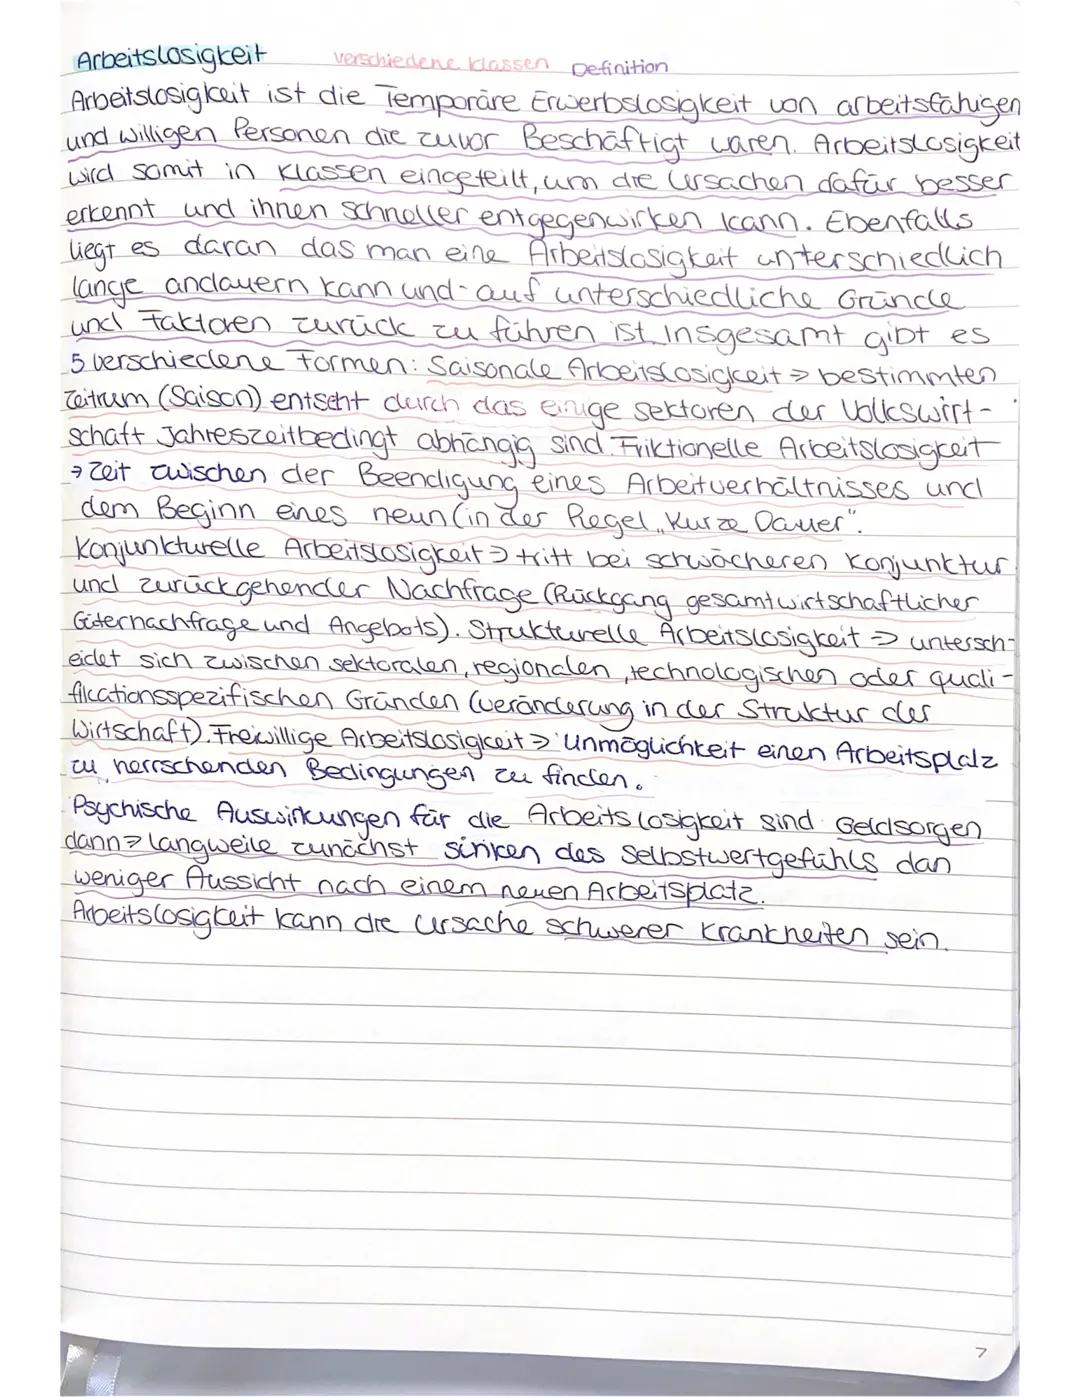 Arbeitslosigkeit verschiedene klassen Definition
Arbeitslosigkeit ist die Temporäre Erwerbslosigkeit von arbeitsfähigen
und willigen Personen die zuvor Beschäftigt waren. Arbeitslosigkeit
wird somit in Klassen eingeteilt, um die Ursachen dafür besser
erkennt und ihnen schneller entgegenwirken kann. Ebenfalls
liegt es daran das man eine Arbeitslosigkeit unterschiedlich
lange andauern kann und auf unterschiedliche Gründe
und Faktoren zurück zu führen ist. Insgesamt gibt es
5 verschiedene Formen: Saisonale Arbeitslosigkeit → bestimmten
Zeitrum (Saison) entseht durch das einige sektoren der Volkswirt-
schaft Jahreszeitbedingt abhängig sind. Friktionelle Arbeitslosigkeit
→ Zeit zwischen der Beendigung eines Arbeitverhältnisses und
dem Beginn eines neun (in der Regel „Kurze Dauer".
Konjunkturelle Arbeitslosigkeit → tritt bei schwächeren Konjunktur
und zurückgehender Nachfrage (Rückgang gesamtwirtschaftlicher
Güternachfrage und Angebots). Strukturelle Arbeitslosigkeit → untersch-
eidet sich zwischen sektoralen, regionalen, technologischen oder quali-
fikationsspezifischen Gründen (veränderung in der Struktur der
Wirtschaft). Freiwillige Arbeitslosigkeit → Unmöglichkeit einen Arbeitsplalz
zu herrschenden Bedingungen zu finden.
Psychische Auswirkungen für die Arbeitslosigkeit sind Geldsorgen
dann → langweile zunächst sinken des Selbstwertgefühls dan
weniger Aussicht nach einem neuen Arbeitsplatz.
Arbeitslosigkeit kann die Ursache schwerer Krankheiten sein.
7